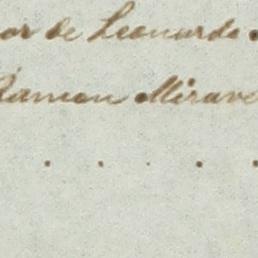 or de Leonardo
Ramon Mirave